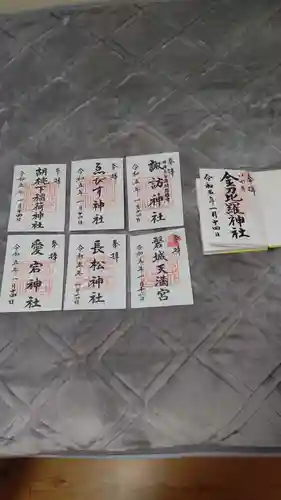 奉拝
胡桃下稲荷神社
令和五年一月十四日
奉拝
ゑびす神社
令和五年一月十四日
奉拝
諏訪神社
令和五年一月十四日
奉拝
金刀比羅神社
令和五年一月十四日
奉拝
愛宕神社
令和五年一月十四日
奉拝
長松神社
令和五年一月十四日
奉拝
城天満宮
令和五年一月十